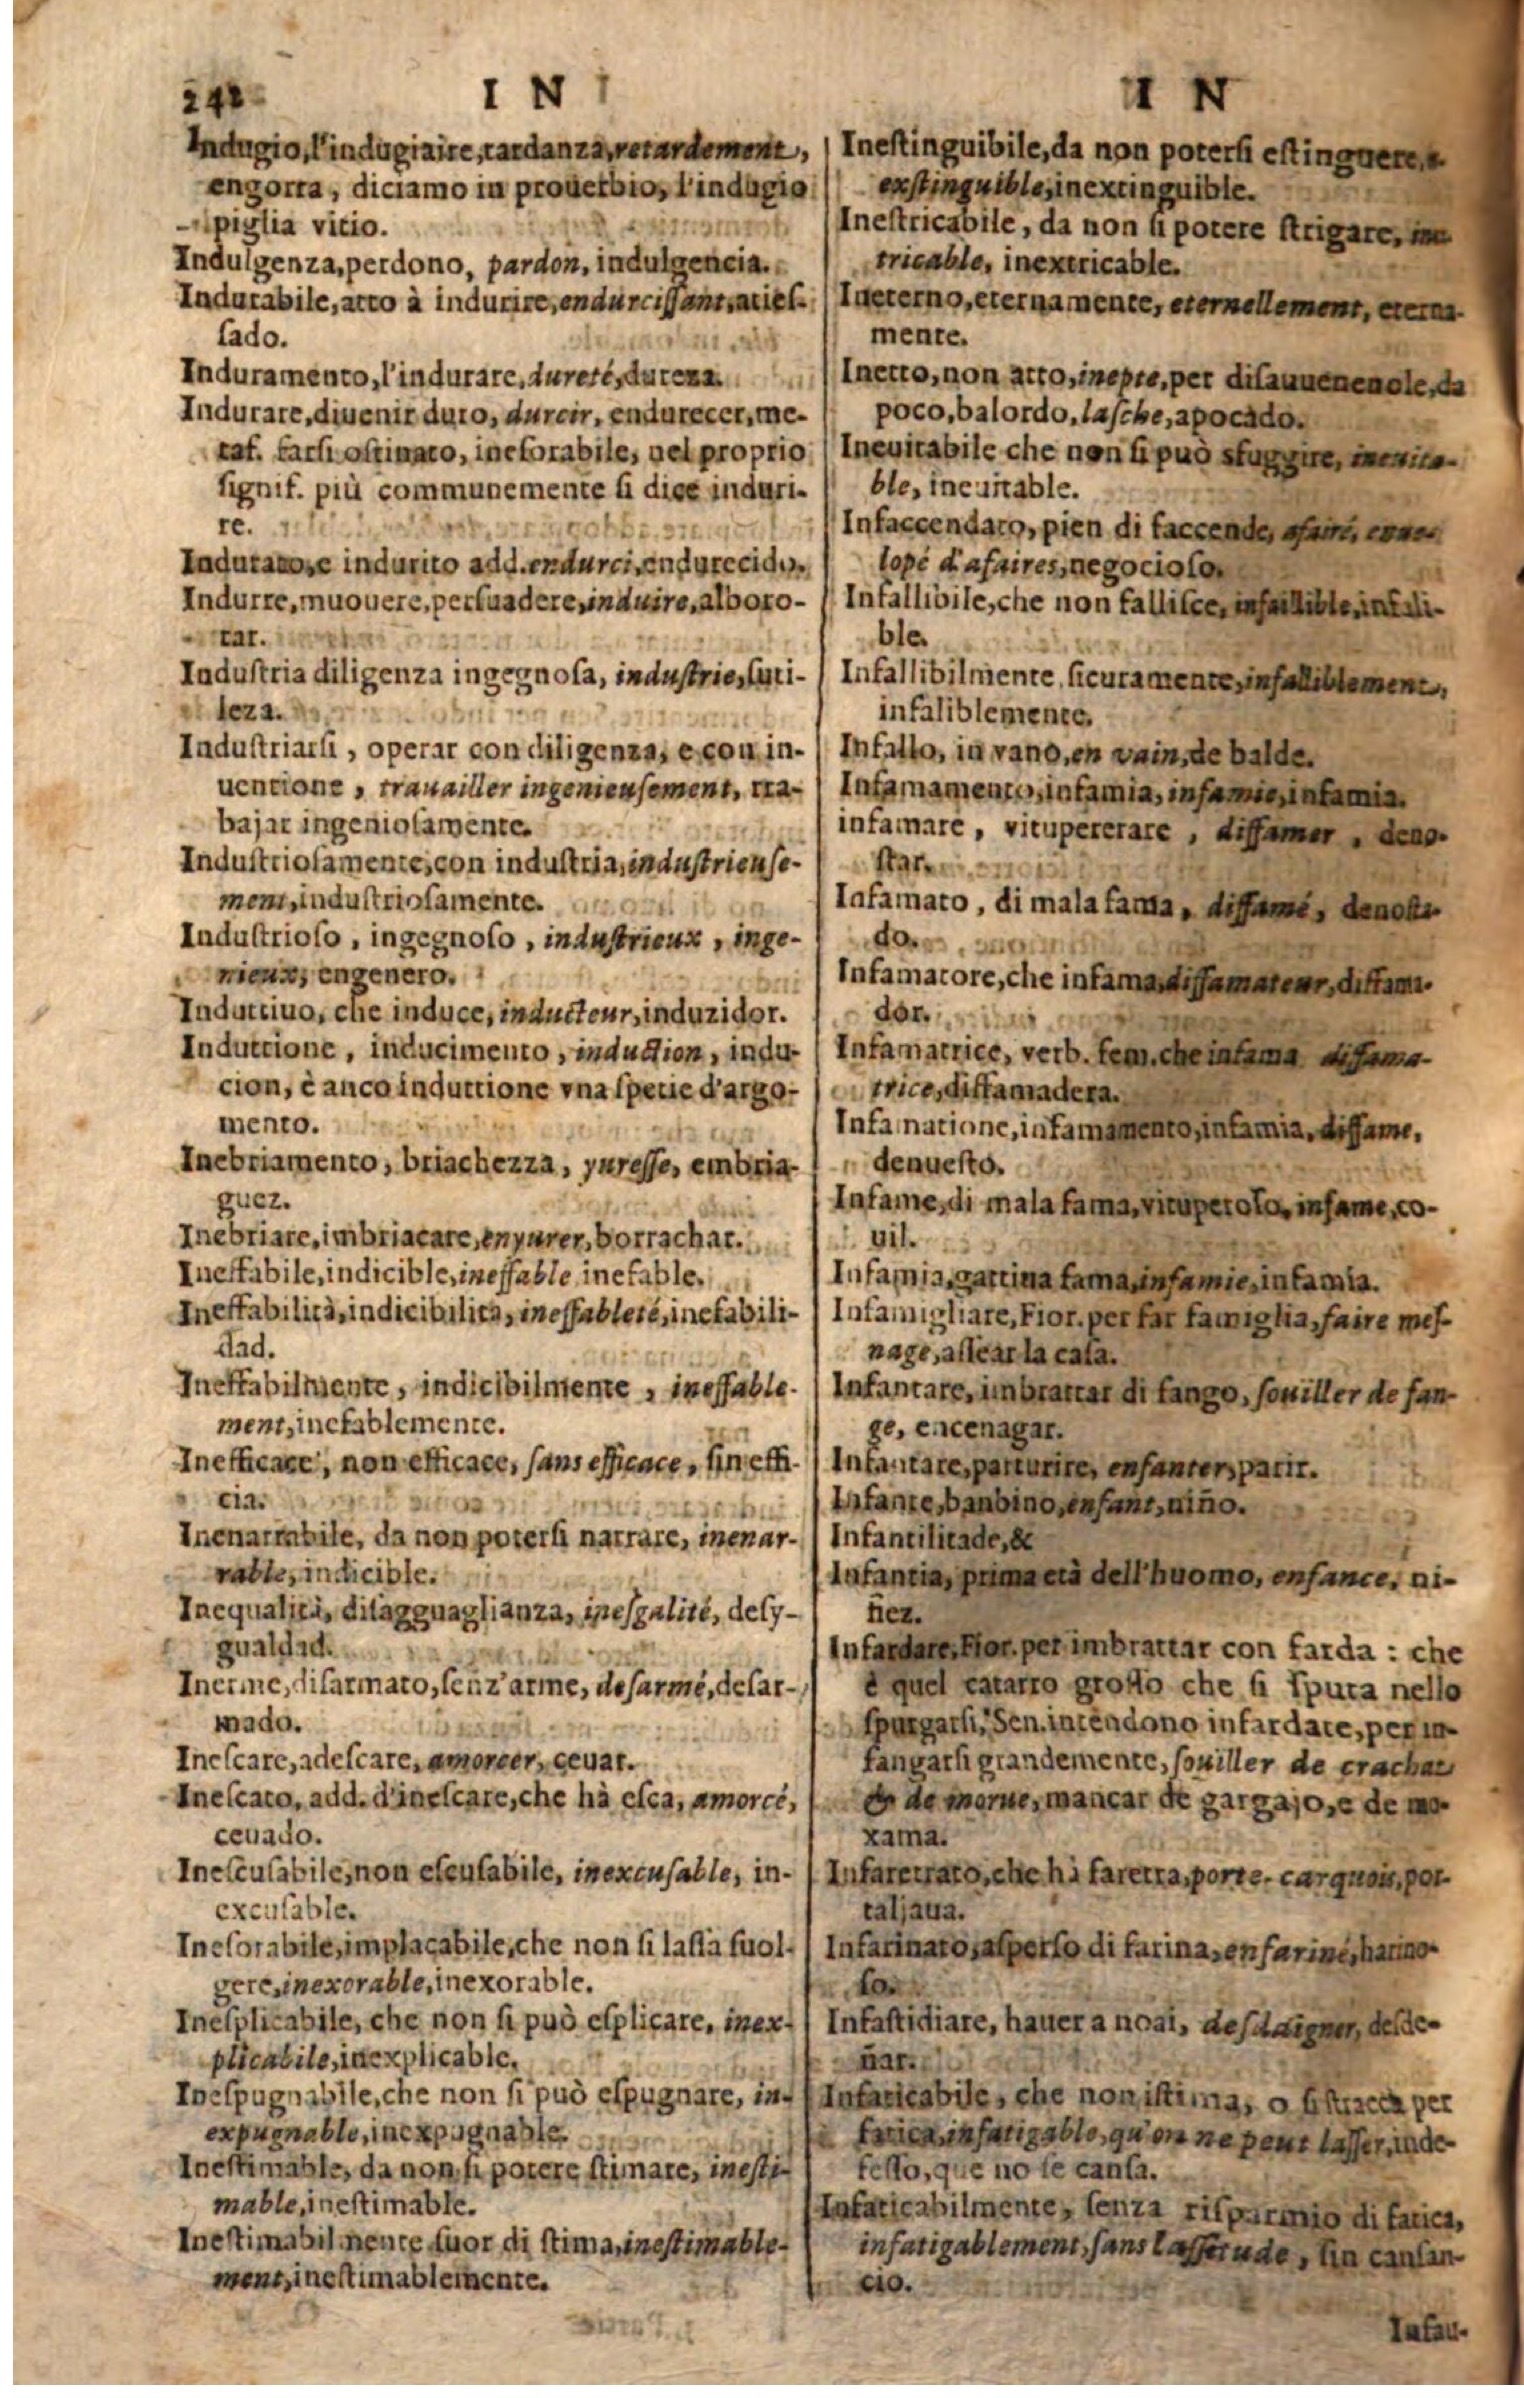 242 I N
Indugio,l'indugiaire,tardanza,retardement,
engorra, diciamo in prouerbio, l'indugio
piglia vitio.
Indulgenza,perdono, pardon, indulgencia.
Indurabile,atto à indurire,endurciſſant,atieſ-
ſado.
Induramento,l'indurare,dureté,dureza.
Indurare,diuenir duro, durcir, endurecer,me-
taf. farſi oſtinato, ineſorabile, nel proprio
ſignif. più communemente ſi dice induri-
re.
Indurato,e indurito add.endurci,endurecido.
Indurre,muouere,perſuadere,induire,alboro-
tar.
Induſtria diligenza ingegnoſa, induſtrie,ſuti-
leza.
Induſtriarſi, operar con diligenza, e con in-
uentione, trauailler ingenieuſement, tra-
bajar ingenioſamente.
Induſtrioſamente,con induſtria,induſtrieuſe-
ment,induſtrioſamente.
Induſtrioſo, ingegnoſo, induſtrieux, inge-
nieux, engenero.
Induttiuo, che induce, inducteur,induzidor.
Induttione, inducimento, induction, indu-
cion, è anco induttione vna ſpetie d'argo-
mento.
Inebriamento, briachezza, yureſſe, embria-
guez.
Inebriare,imbriacare,enyurer,borrachar.
Ineffabile,indicible,ineffable inefable.
Ineffabilità,indicibilità, ineffableté,inefabili-
dad.
Ineffabilmente, indicibilmente, ineffable-
ment,inefablemente.
Inefficace, non efficace, ſans efficace, ſin effi-
cia.
Inenarrabile, da non poterſi narrare, inenar-
rable, indicible.
Inequalità, diſagguaglianza, ineſgalité, deſy-
gualdad.
Inerme,diſarmato,ſenz'arme, deſarmé,deſar-
mado.
Ineſcare,adeſcare, amorcer, ceuar.
Ineſcato, add. d'ineſcare,che hà eſca, amorcé,
ceuado.
Ineſcuſabile,non eſcuſabile, inexcuſable, in-
excuſable.
Ineſorabile,implacabile,che non ſi laſſa ſuol-
gere,inexorable,inexorable.
Ineſplicabile, che non ſi può eſplicare, inex-
plicabile,inexplicable.
Ineſpugnabile,che non ſi può eſpugnare, in-
expugnable,inexpugnable.
Ineſtimable, da non ſi potere ſtimare, ineſti-
mable,ineſtimable.
Ineſtimabilmente fuor di ſtima,ineſtimable-
ment,ineſtimablemente.
I N
Ineſtinguibile,da non poterſi eſtinguere,
exſtinguible,inextinguible.
Ineſtricabile, da non ſi potere ſtrigare, ine
tricable, inextricable.
Ineterno,eternamente, eternellement, eterna-
mente.
Inetto,non atto,inepte,per diſauuenenole,da
poco,balordo,laſche,apocado.
Ineuitabile che non ſi può sfuggire, ineuita-
ble, ineuitable.
Infaccendato, pien di faccende, afairé, enue-
lopé d'afaires,negocioſo.
Infallibile,che non falliſce, infaillible,infali-
ble.
Infallibilmente ſicuramente,infalliblement,
infaliblemente.
Infallo, in vano,en vain,de balde.
Infamamento,infamia, infamie,infamia.
infamare, vitupererare, diffamer, deno-
ſtar.
Infamato, di mala fama, diffamé, denoſta-
do.
Infamatore,che infama,diffamateur,diffama-
dor.
Infamatrice, verb. fem.che infama diffama-
trice,diffamadera.
Infamatione,infamamento,infamia,diffame,
denueſto.
Infame,di mala fama,vituperoſo, infame,co-
uil.
Infamia,cattiua fama,infamie,infamia.
Infamigliare,Fior.per far famiglia,faire meſ-
nage,aſſear la caſa.
Infantare, imbrattar di fango, ſouiller de fan-
ge, encenagar.
Infantare,parturire, enfanter,parir.
Infante,banbino,enfant,niño.
Infantilitade,&
Infantia, prima età dell'huomo, enfance, ni-
ñez.
Infardare,Fior.per imbrattar con farda : che
è quel catarro groſſo che ſi ſputa nello
ſpurgarſi, Sen.intendono infardare,per in-
fangarſi grandemente, ſouiller de crachat
& de morue,mancar de gargajo,e de mo-
xama.
Infaretrato,che hà faretra,porte-carquois,por-
taljaua.
Infarinato,aſperſo di farina,enfariné,harino-
ſo.
Infaſtidiare, hauer a noai, deſdaigner, deſde-
ñar.
Infaticabile, che non iſtima, o ſi ſtracca per
fatica,infatigable,qu'on ne peut laſſer,inde-
feſſo,que no ſe canſa.
Infaticabilmente, ſenza riſparmio di fatica,
infatigablement,ſans laſſetude, ſin canſan-
cio.
Infau-